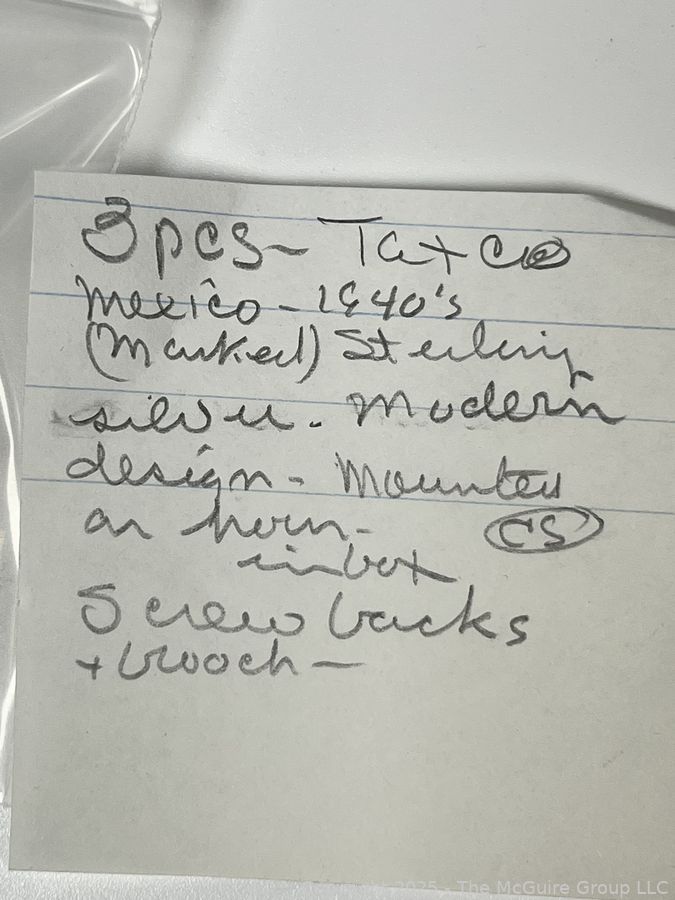 3 pcs - Taxco
Mexico - 1940's
(marked) Sterling
silver. Modern
design - Mounted
on horn -
CS
in box
Screw backs
+ brooch -
2025 - The McGuire Group LLC